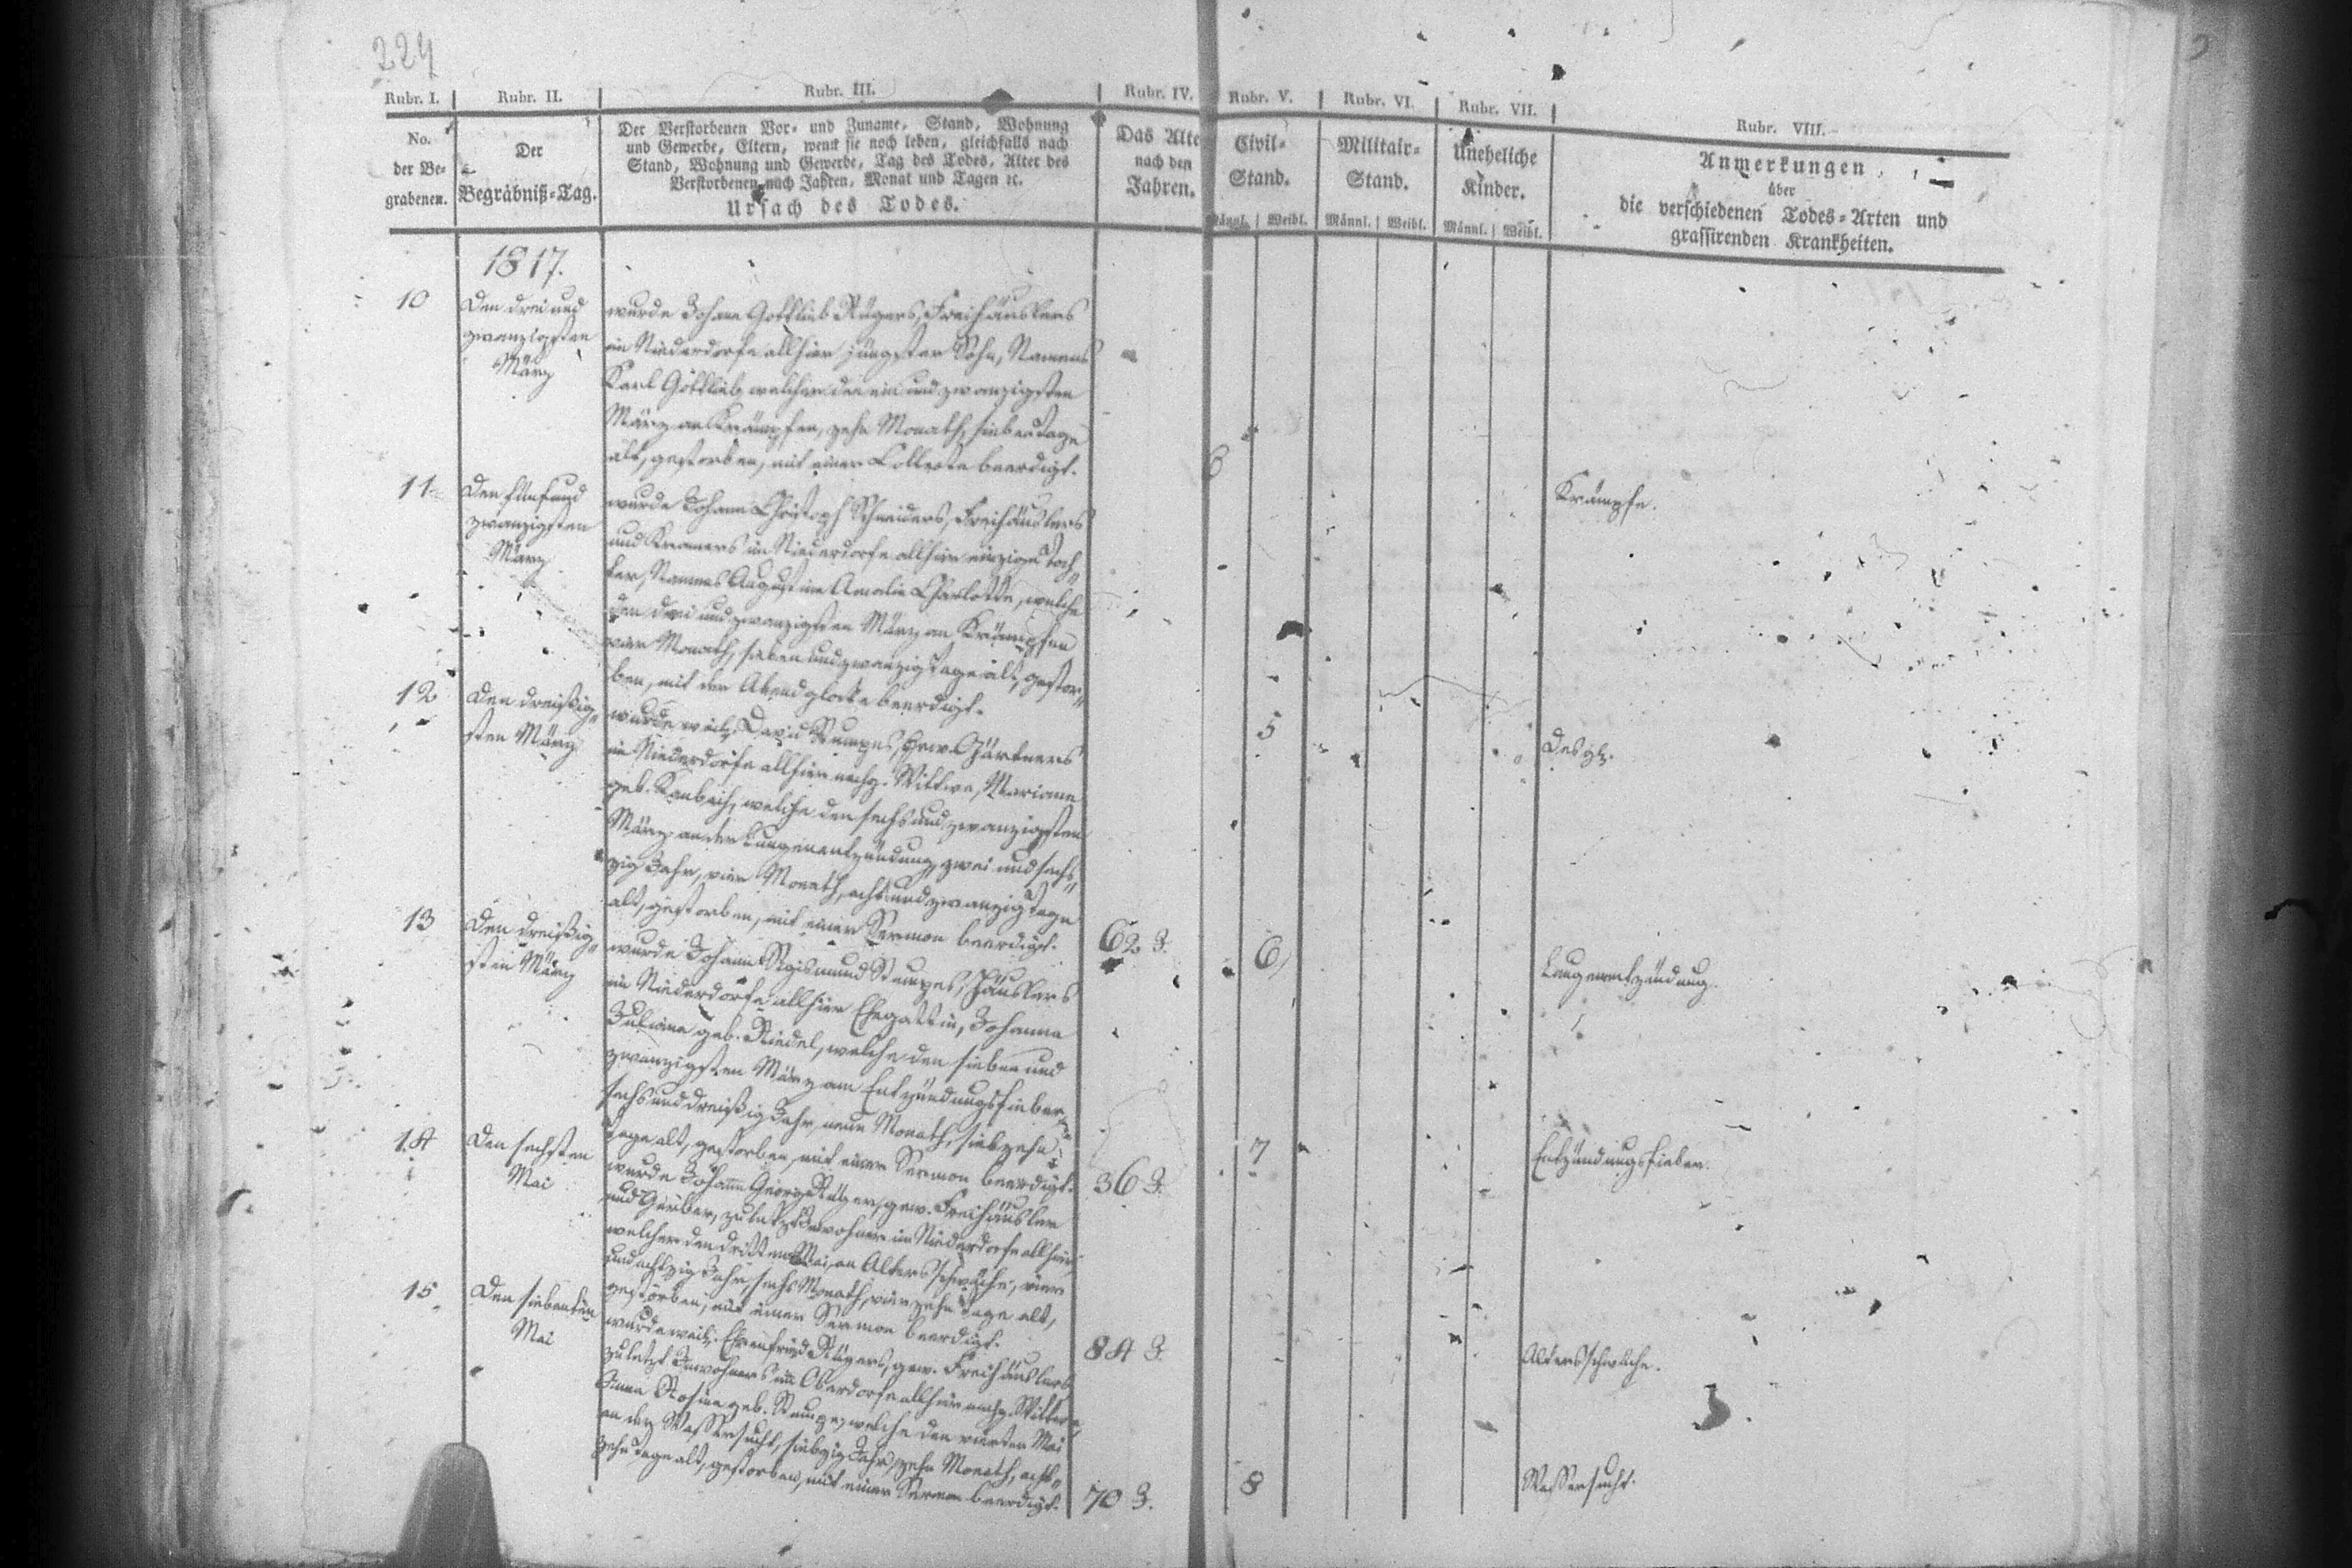 224
Rubr. I. Rubr. II. Rubr. III. Rubr. IV. Rubr. V. Rubr. VI. Rubr. VII. Rubr. VIII.
No.
der Be-
grabenen.
Der
Begräbniß-Tag.
Der Verstorbenen Vor- und Zuname, Stand, Wohnung
und Gewerbe, Eltern, wenn sie noch leben, gleichfalls nach
Stand, Wohnung und Gewerbe, Tag des Todes, Alter des
Verstorbenen nach Jahren, Monat und Tagen ꝛc.
Ursach des Todes.
Das Alte
nach den
Jahren.
Civil-
Stand.
Männl. Weibl.
Militair-
Stand.
Männl. Weibl.
Uneheliche
Kinder.
Männl. Weibl.
Anmerkungen
über
die verschiedenen Todes-Arten und
grassirenden Krankheiten.
1817.
10
Den drei und
zwanzigsten
März
wurde Johann Gottlieb Rügers, Freihäuslers
im Niederdorfe allhier jüngster Sohn, Namens
Karl Gottlieb, welcher den ein und zwanzigsten
März an Krämpfen, zehn Monath, sieben Tage
alt, gestorben, mit einer Collecte beerdigt.
6
Krämpfe.
11
Den fünf und
zwanzigsten
März
wurde Johann Christoph Schneiders, Freihäuslers
und Kramers im Niederdorfe allhier einzige Toch-
ter, Namens Augustine Amalie Charlotte, welche
den drei und zwanzigsten März an Krämpfen
vier Monath, sieben und zwanzig Tage alt, gestor-
ben, mit der Abendglocke beerdigt.
5
Desgl.
12
Den dreißig-
sten März
wurde weil. David Stumpes, gew. Gärtners
im Niederdorfe allhier nachg. Wittwe, Mariane
geb. welche den sechs und zwanzigsten
März an der Lungenentzündung, zwei und sech-
zig Jahr, vier Monath, acht und zwanzig Tage
alt, gestorben, mit einer Sermon beerdigt.
62 J.
6
Lungenentzündung.
13
Den dreißig-
sten März
wurde Johann Sigismund Stumpes, Häuslers
im Niederdorfe allhier Ehegattin, Johanna
Juliana geb. Riedel, welche den sieben und
zwanzigsten März am Entzündungsfieber,
sechs und dreißig Jahr, neun Monath, siebzehn
Tage alt, gestorben, mit einer Sermon beerdigt.
36 J.
7
Entzündungsfieber.
14
Den sechsten
Mai
wurde Johann George gew. Freihäusler
und Gerber, zuletzt Inwohner im Niederdorfe allhier,
welcher den dritten Mai, an Altersschwäche, vier
und achtzig Jahr, sechs Monath, vierzehn Tage alt,
gestorben, mit einer Sermon beerdigt.
84 J.
Altersschwäche.
15
Den siebenten
Mai
wurde weil. Ehrenfried Rügers, gew. Freihäuslers
zuletzt Inwohners im Oberdorfe allhier nachg. Wittwe,
Anna Rosina geb. Stumpe, welche den vierten Mai
an der Wassersucht, siebzig Jahr, zehn Monath, acht-
zehn Tage alt, gestorben, mit einer Sermon beerdigt.
70 J.
8
Wassersucht.